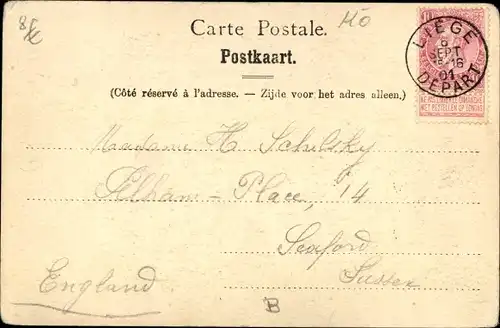 Carte Postale.
Postkaart.
(Côté réservé à l'adresse. — Zijde voor het adres alleen.)
10
LIÉGE
6
SEPT
15-16
01
DÉPART
NE PAS LIVRER LE DIMANCHE
NIET BESTELLEN OP ZONDAG
Madame H Schilsky
Place, 14
Seaford
Sussex
England
B